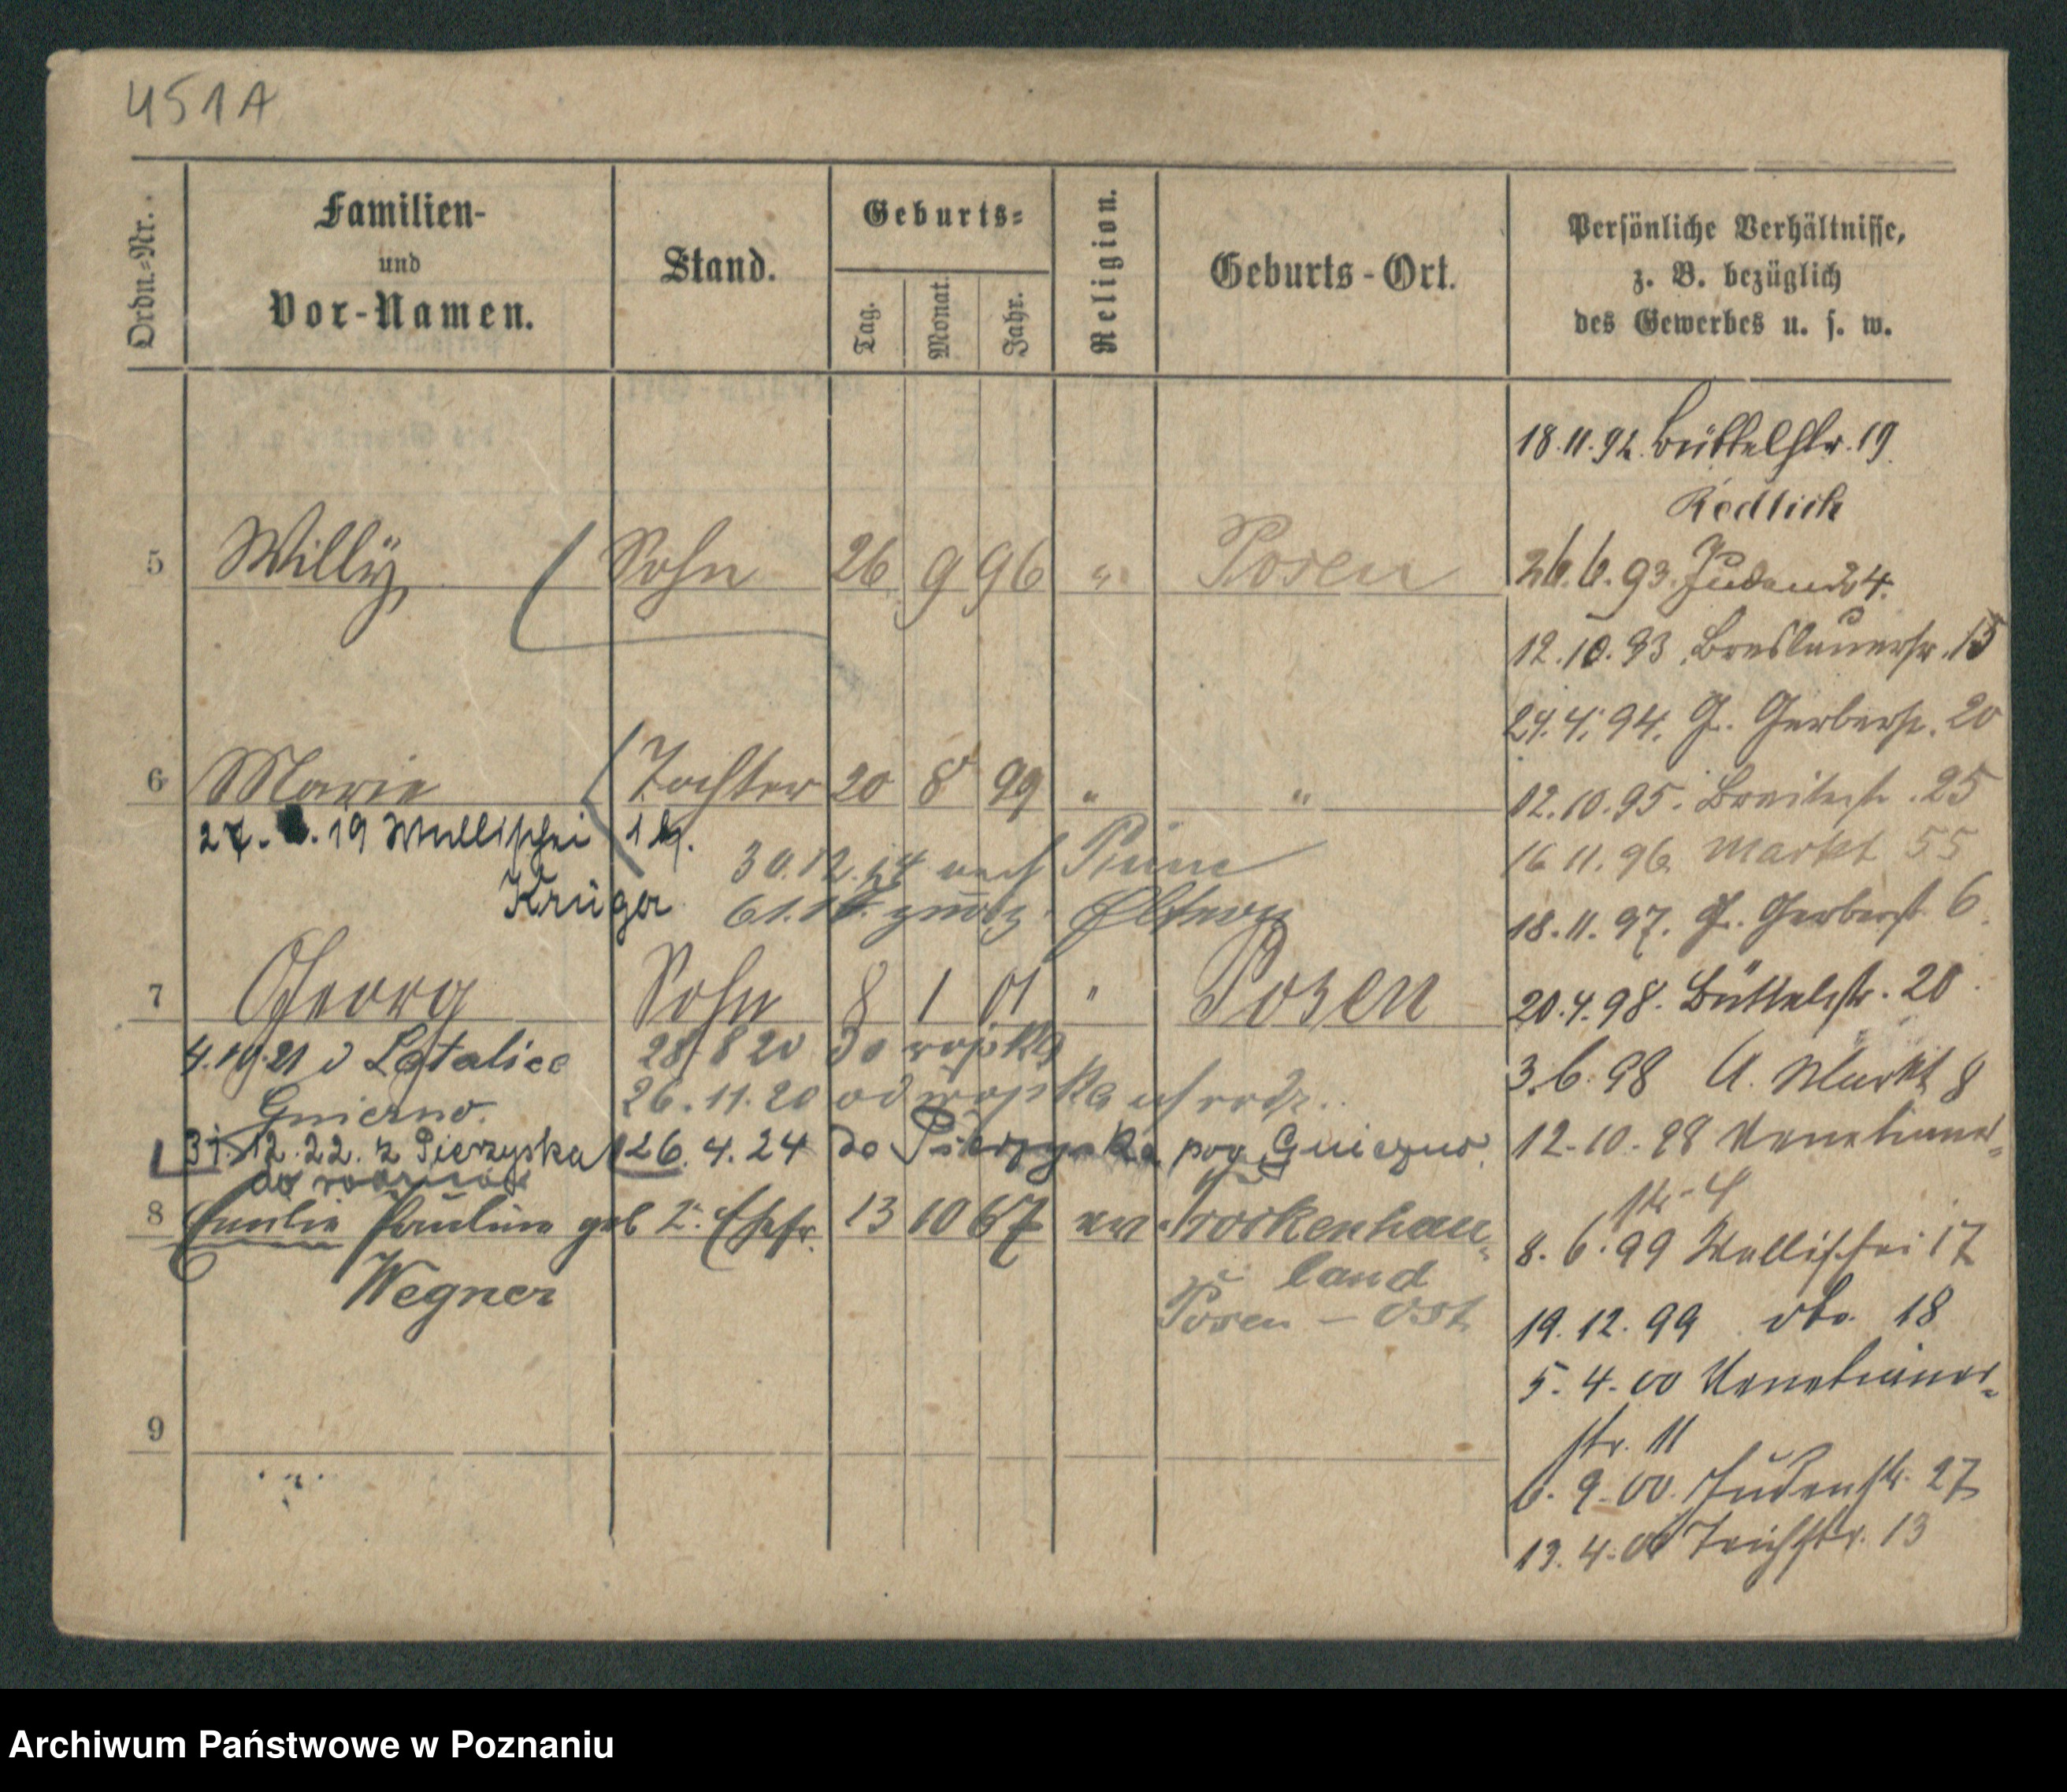 451A
Ordn.-Nr.
Familien-
und
Vor-Namen.
Stand.
Geburts-
Tag.
Monat.
Jahr.
Religion.
Geburts-Ort.
Persönliche Verhältnisse,
z. B. bezüglich
des Gewerbes u. s. w.
18.11.92. Büttelstr. 19
Redlich
5 Willy Sohn 26 9 96 " Posen
26.6.93. Juden 24.
12.10.93. Breslauerstr. 15
24.4.94. G. Gerberstr. 20
6 Marie Tochter 20 8 99 " "
12.10.95. Breitestr. 25
27. .19 Wallischei
Krüger
30.12. nach Pinne
zurück
16.11.96. Markt 55
18.11.97. G. Gerberstr 6
7 Georg Sohn 8 1 01 " Posen
20.4.98. Büttelstr. 20
4.10.21 Latalice
Gniezno.
28.8 20 do wojska
26.11.20 od wojska
3.6.98 A. Markt 8
31.12.22. z Pierzyska
26.4.24 do Pierzyska pow Gniezno
12.10.98 Venetianer-
str. 4
8 Emilie Pauline geb 2. Ehefr. 13 10 67 ev Trockenhau-
Wegner
land
Posen - Ost
8.6.99 Wallischei 17
19.12.99 do. 18
5.4.00 Venetianer-
str. 11
9
6.9.00. Judenstr. 27
13.4. Teichstr. 13
Archiwum Państwowe w Poznaniu